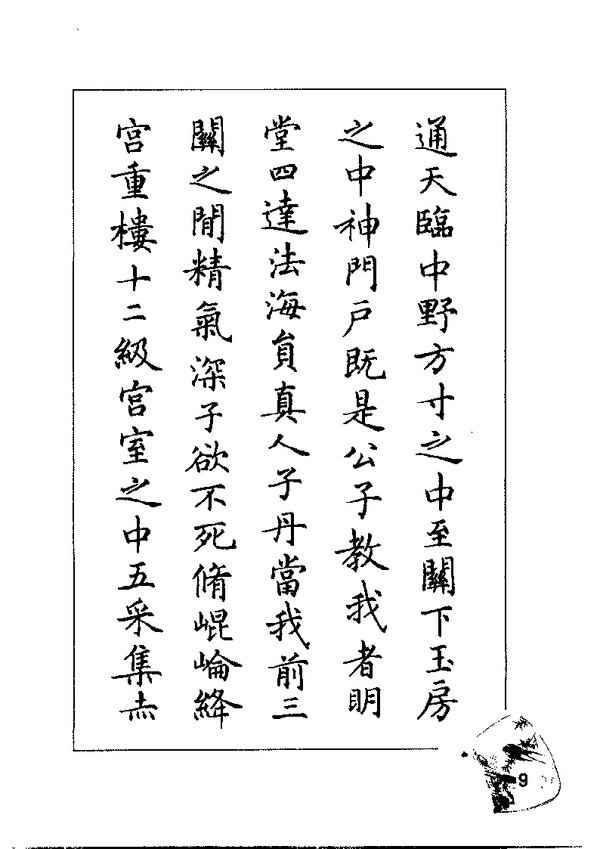 通天臨中野方寸之中至關下玉房
之中神門戶既是公子教我者明
堂四達法海員真人子丹當我前三
關之間精氣深子欲不死脩崐崘絳
宮重樓十二級宮室之中五采集赤
9